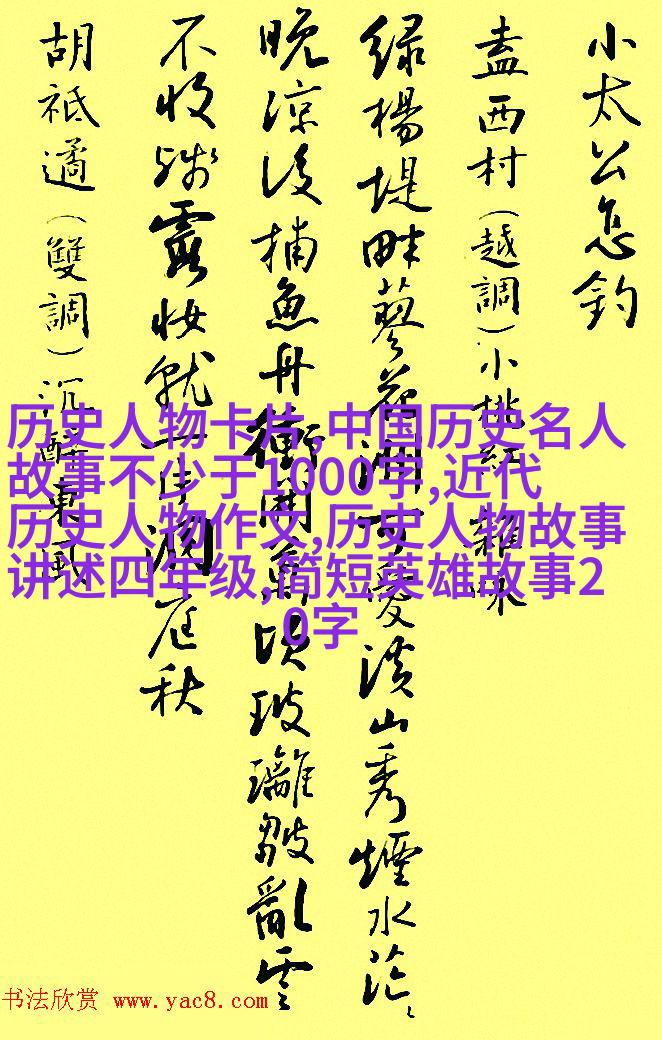 小太公怎釣
盍西村（越調）小桃紅 雜咏
绿楊堤畔蓼花洲可愛溪山秀煙水茫、
晚涼後捕魚舟衝開萬頃玻璃皺亂雲
不收殘霞妝就一片洞庭秋
胡祇遹（雙調）沉醉東風
历史人物卡片,中国历史名人
故事不少于1000字,近代
历史人物作文,历史人物故事
讲述四年级,简短英雄故事2
0字
书法欣赏 www.yac8.com